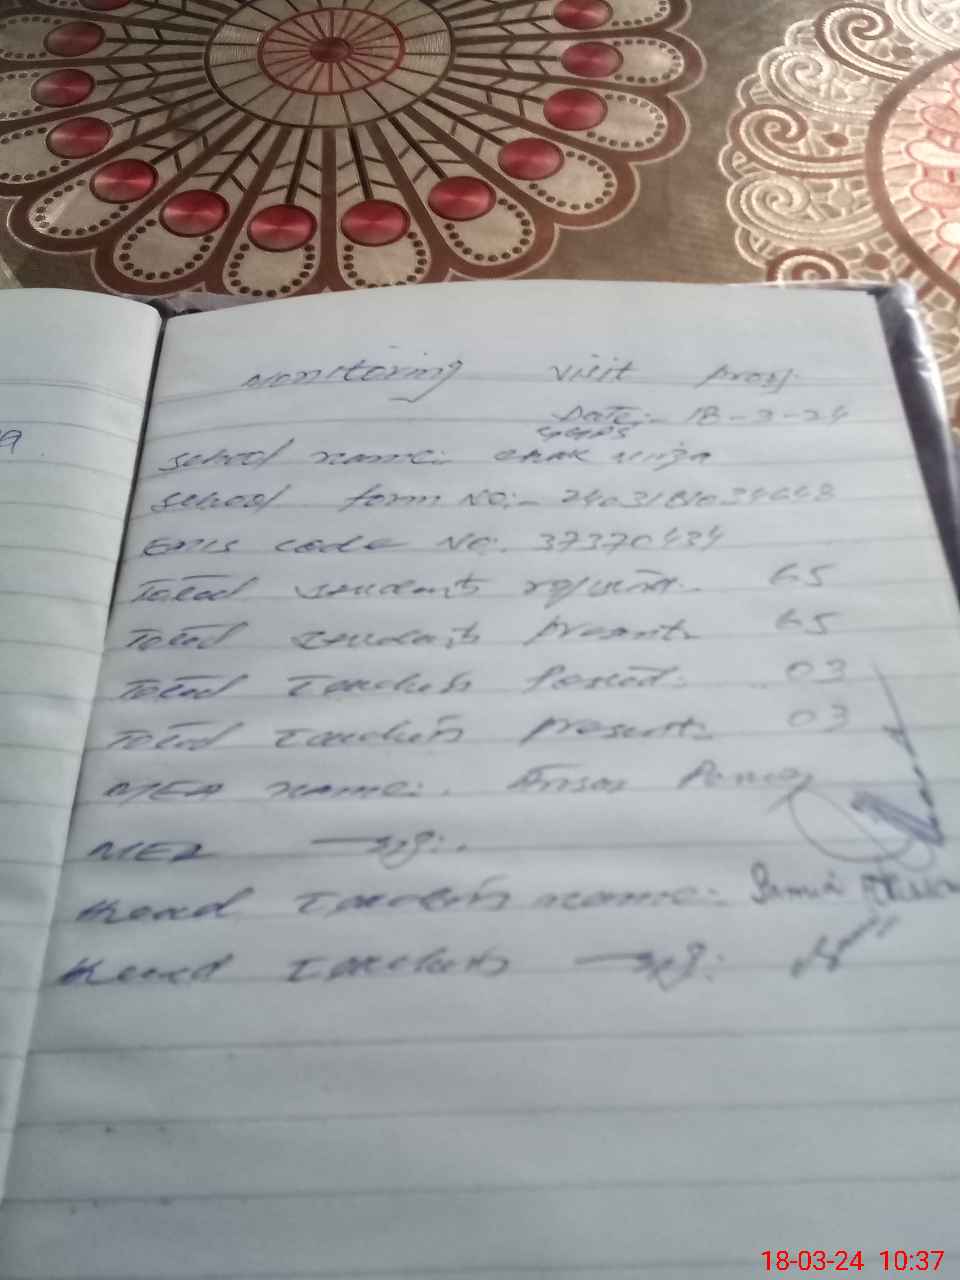 Monitoring visit proof
Date:- 18-3-24
GGPS
School name:- Chak
School form No:- 24031818034648
EMIS code No. 37370434
Total students 65
Total students present 65
Total Teachers Posted. 03
Total Teachers presents 03
MEA name:.
MEA sig:.
Head Teachers name:
Head Teachers sig:
9
18-03-24 10:37